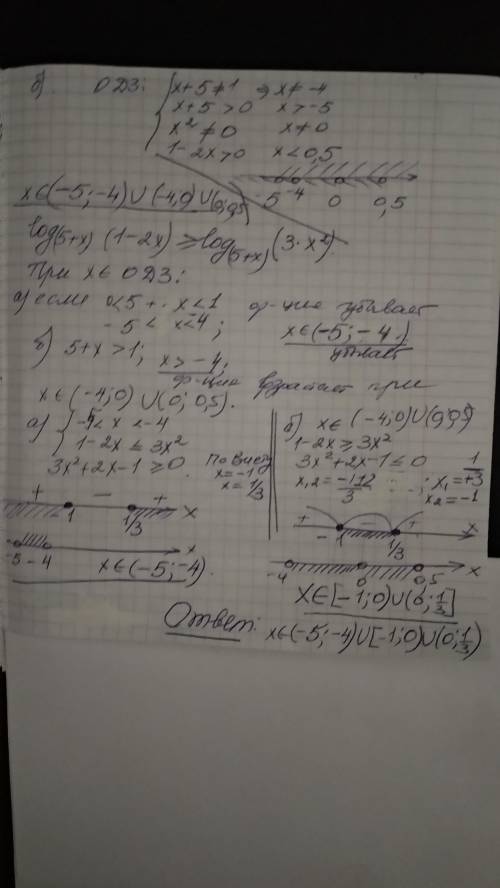 б) ОДЗ: { x+5≠1 ⇒ x≠-4
x+5>0 x>-5
x²≠0 x≠0
1-2x>0 x<0,5
-5 -4 0 0,5
x∈(-5;-4)∪(-4,0)∪(0;0,5)
log(5+x) (1-2x) ≥ log(5+x) (3·x²).
При x∈ОДЗ:
а) если 0<5+x<1 ф-ция убывает
-5<x<-4; x∈(-5;-4.)
убывает
б) 5+x>1; x>-4,
ф-ция возрастает при
x∈(-4;0)∪(0;0,5).
а) { -5<x<-4
1-2x≤3x²
3x²+2x-1≥0. По Виету
x=-1
x=1/3
+ - +
-1 1/3 x
-5 -4 x
x∈(-5;-4).
б) x∈(-4;0)∪(0;0,5)
1-2x≥3x²
3x²+2x-1≤0
x₁,₂=-1±2/3 ; x₁=+1/3
x₂=-1
+ - +
-1 1/3 x
-4 0 0,5 x
x∈[-1;0)∪(0;1/3]
Ответ: x∈(-5;-4)∪[-1;0)∪(0;1/3)